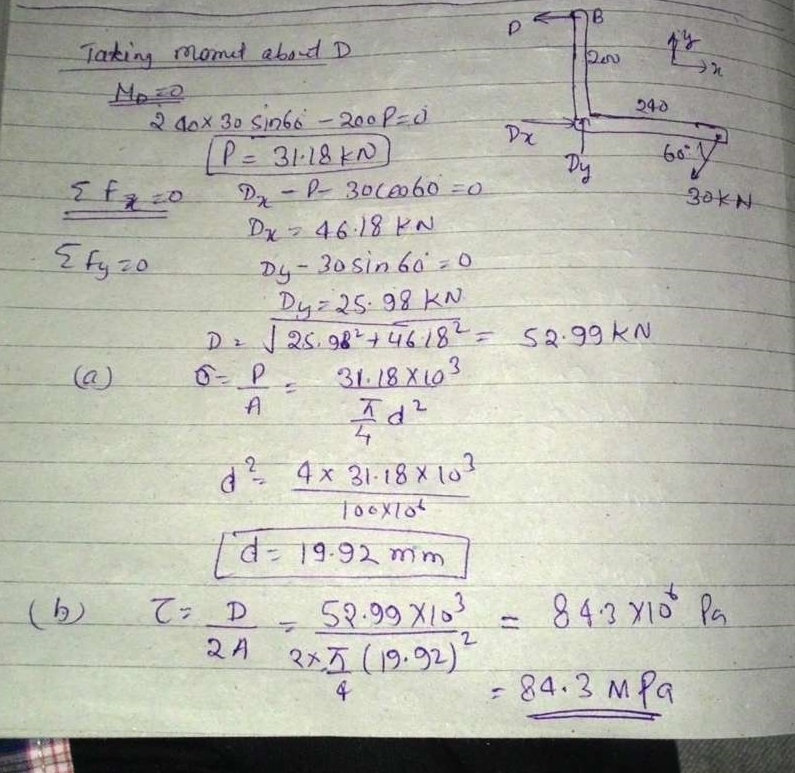 Taking momet about D
M_D=0
240×30 sin60° - 200P=0
P = 31.18 kN
Σ F_x=0 D_x - P - 30cos60°=0
D_x = 46.18 kN
Σ Fy=0 Dy - 30 sin 60°=0
Dy = 25.98 kN
D = √25.98²+46.18² = 52.99 kN
(a) σ = P/A = 31.18×10³ / π/4 d²
d² = 4 × 31.18 × 10³ / 100×10⁶
d = 19.92 mm
(b) τ = D/2A = 52.99×10³ / 2×π/4 (19.92)² = 84.3 ×10⁶ Pa
= 84.3 MPa
P
B
200
y
x
240
Dx
Dy
60°
30kN